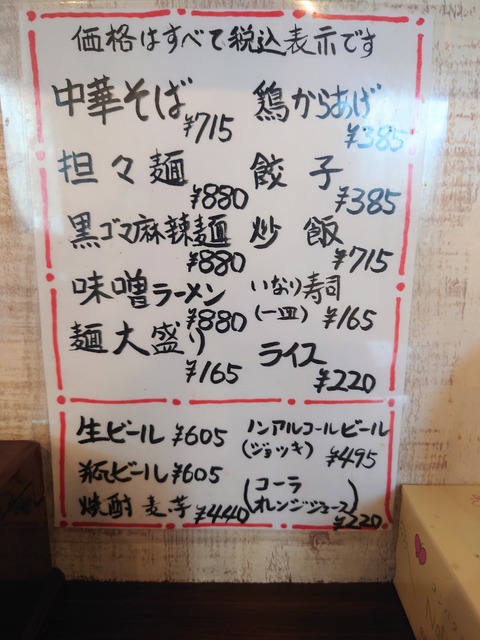 価格はすべて税込表示です
中華そば
¥715
担々麺
¥880
黒ゴマ麻辣麺
¥880
味噌ラーメン
¥880
麺大盛り
¥165
鶏からあげ
¥385
餃子
¥385
炒飯
¥715
いなり寿司
(一皿) ¥165
ライス
¥220
生ビール ¥605
瓶ビール ¥605
焼酎 麦芋 ¥440
ノンアルコールビール
(ジョッキ) ¥495
(コーラ
オレンジジュース)
¥220